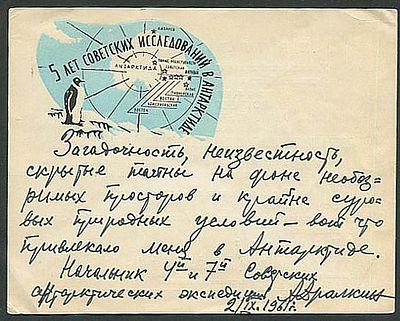 5 ЛЕТ СОВЕТСКИХ ИССЛЕДОВАНИЙ В АНТАРКТИДЕ
АНТАРКТИДА
Загадочность, неизвестность,
скрытые тайны на фоне необоз-
римых просторов и крайне суро-
вых природных условий — вот что
привлекало меня в Антарктиде.
Начальник 4й и 7й Советских
антарктических экспедиций А Дралкин
2/IX. 1961г.